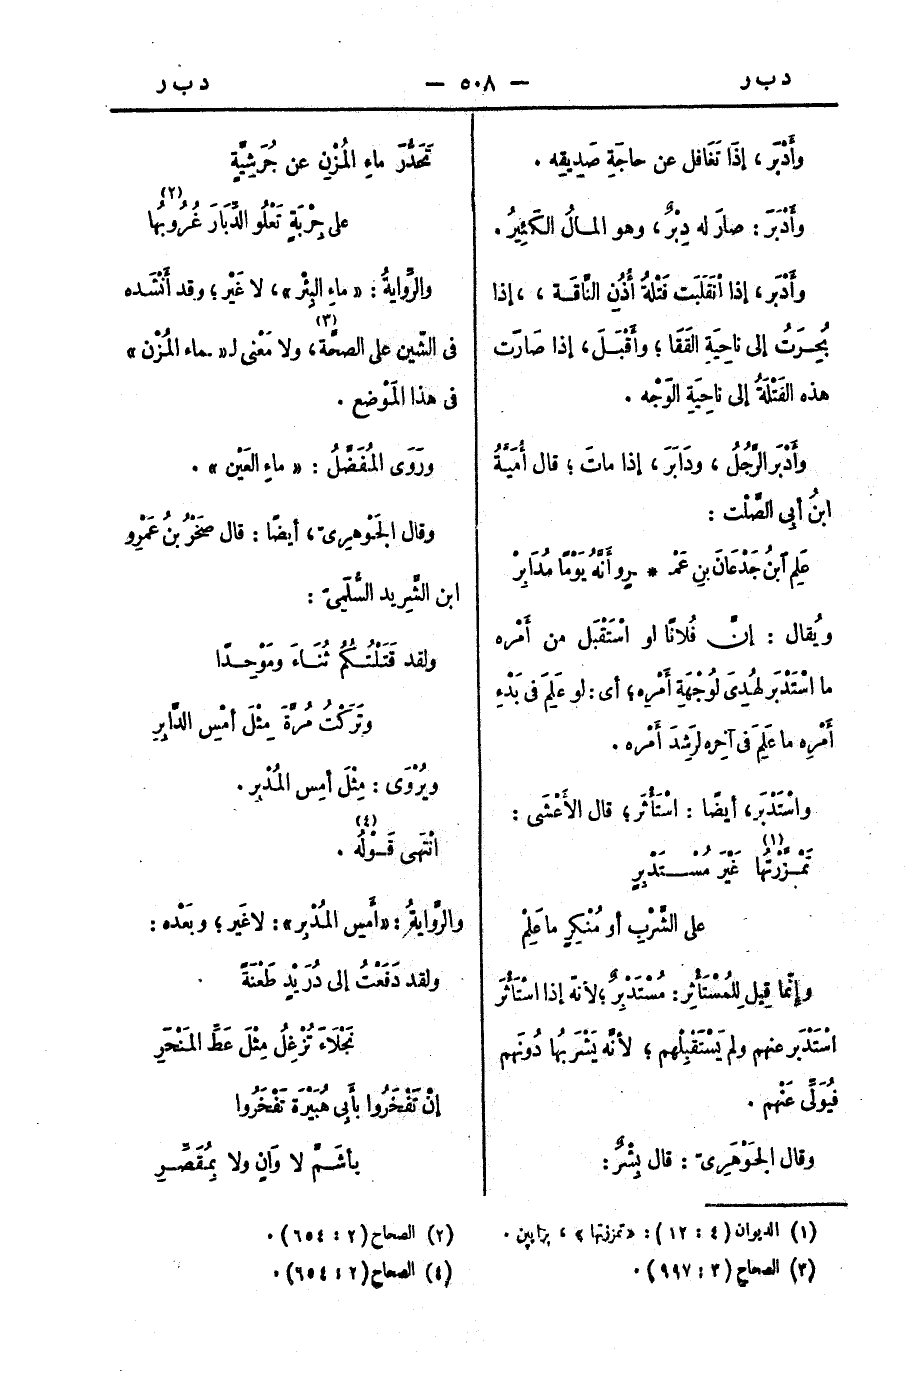 دبر
— ٥٠٨ —
دبر
وأَدْبَر ، إذَا تَغَافل عن حاجَةِ صَدِيقِه .
وأَدْبَرَ : صارَ له دِبْرٌ ، وهو المالُ الكَثِيرُ .
وأَدْبَر ، إذا انْقَلَبَت فَتْلَةُ أُذُنِ النَّاقَة ، ، إذا
نُحِرَتْ إلى ناحِيَةِ القَفَا ؛ وأَقْبَلَ ، إذا صَارَت
هذه الفَتْلَةُ إلى ناحِيَةِ الوَجْه .
وأَدْبَر الرَّجُلُ ، ودَابَرَ ، إذا ماتَ ؛ قال أُمَيَّةُ
ابنُ أبِي الصَّلْت :
عَلِم ٱبنُ جَدْعَانَ بنِ عَمْـ * ـرٍو أنَّهُ يَوْمًا مُدَابِرْ
ويُقال : إنَّ فُلانًا لو اسْتَقْبَل من أَمْره
ما اسْتَدْبَر لهُدِىَ لوُجْهَةِ أَمْرِه ؛ أى : لو عَلِمَ فى بَدْءِ
أَمْرِه ما عَلِمَ فى آخِره لرَشِدَ أَمْره .
واسْتَدْبَر ، أيضًا : اسْتَأْثر ؛ قال الأَعْشَى :
تَمْـزَّرْتُها غَيْرَ مُسْـتَدْبِرٍ (١)
على الشَّرْبِ أو مُنْكِرٍ ما عَلِمْ
وإنَّما قِيل لِلمُسْتَأْثِر : مُسْتَدْبِرٌ ؛ لأنّه إذا اسْتَأْثَرَ
اسْتَدْبَر عنهم ولم يَسْتَقْبِلْهم ؛ لأنَّه يَشْرَبُها دُونَهم
فيُوَلِّى عَنْهم .
وقال الجَوْهَرِىّ : قال بِشْرٌ :
تَحَدُّرَ ماءِ المُزْنِ عن جُرَشِيَّةٍ
على جِرْبَةٍ تَعْلُو الدِّبَارَ غُرُوبُها (٢)
والرِّوايةُ : « ماءِ البِئْر » ، لا غَيْر ؛ وقد أَنْشَده
فى الشّين على الصحَّة (٣) ، ولا مَعْنى لـ « ـماء المُزْن »
فى هذا المَوْضع .
ورَوَى المُفَضَّلُ : « ماءِ العَيْن » .
وقال الجَوْهرىّ ، أيضًا : قال صَخْرُ بنُ عَمْرِو
ابن الشَّرِيد السُّلَمِىّ :
ولقد قَتَلْتُـكُمُ ثُنَـاءَ ومَوْحِـدًا
وتَرَكْتُ مُرَّةَ مِثْلَ أمْسِ الدَّابِرِ
ويُرْوَى : مِثْلَ أمِس المُدْبِرِ .
انْتَهى قَـوْلُه (٤) .
والرِّوايةُ : « أَمسِ المُدْبِر » : لا غَير ؛ وبَعْده :
ولقد دَفَعْتُ إلى دُرَيْدٍ طَعْنَةً
نَجْلَاءَ تُزْغِلُ مِثْلَ عَطِّ المَنْحَرِ
إنْ تَفْخَرُوا بأَبِى هُبَيْرَةَ تَفْخَرُوا
بأشَـمَّ لا وَانٍ ولا بِمُقَصِّـرِ
(١) الديوان ( ٤ : ١٢ ) : « تمززتها » ، بزايين .
(٣) الصحاح ( ٣ : ٩٩٧ ) .
(٢) الصحاح ( ٢ : ٦٥٤ ) .
(٤) الصحاح ( ٢ : ٦٥٤ ) .